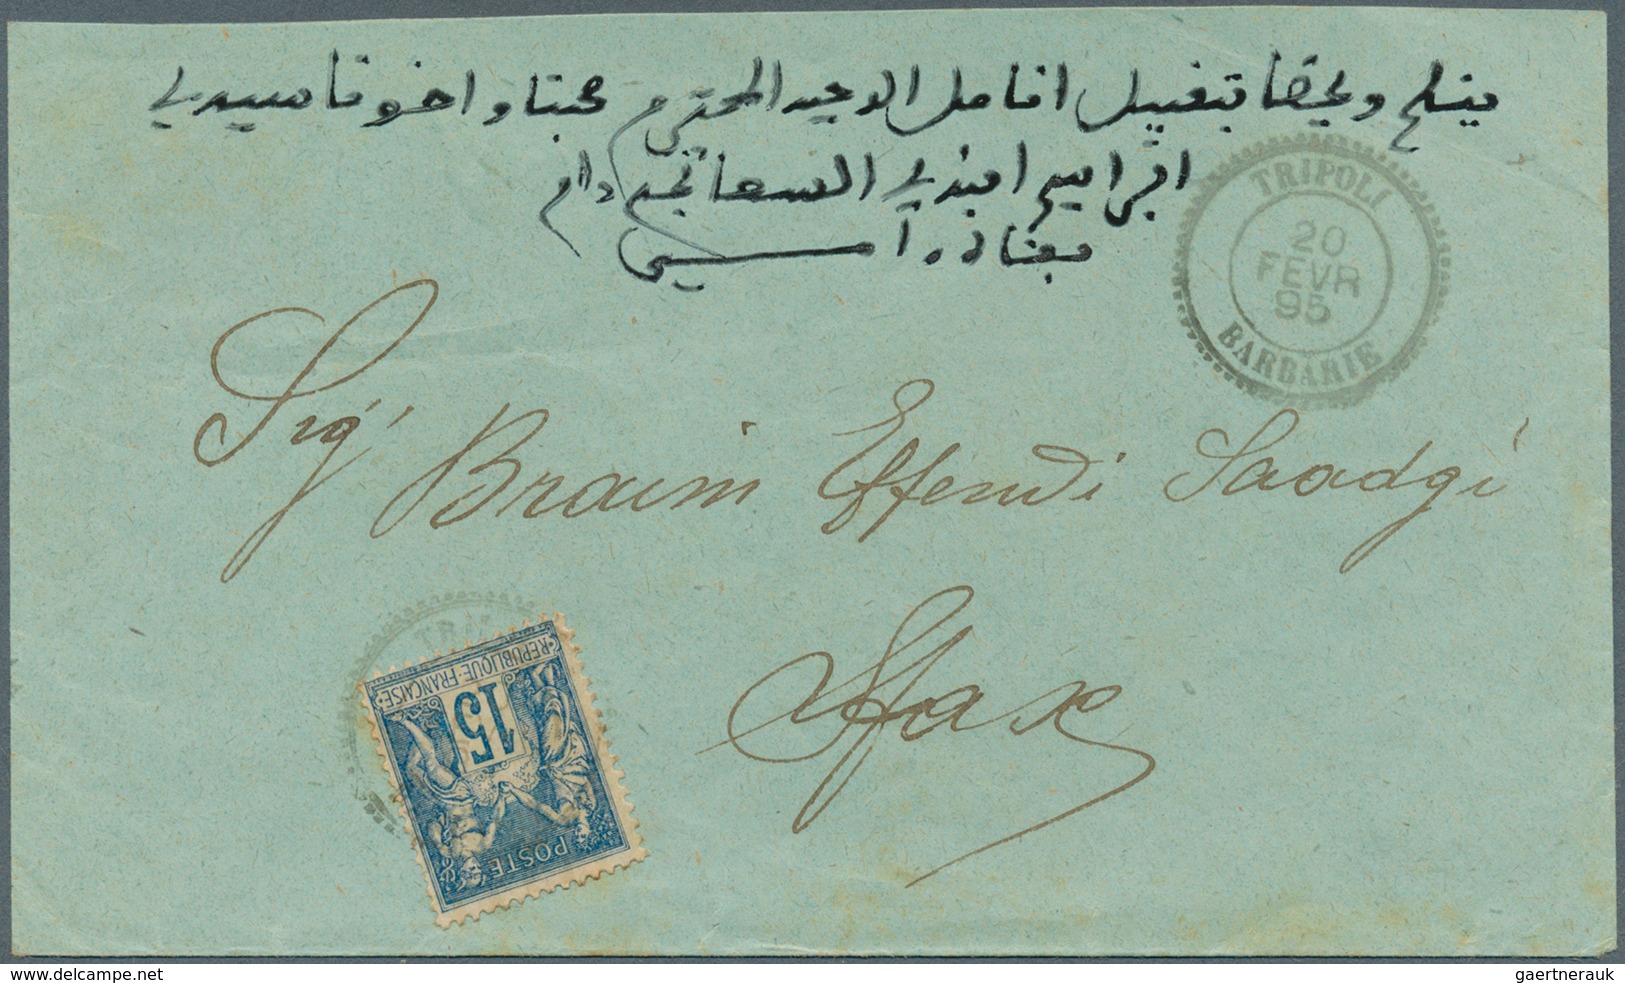 يتسلم ويحضا بتقبيل انامل الوجيه المحترم محبنا واخونا سيدي
ابراهيم افندي السعاتجي دام
بقاه ءامين
TRIPOLI
20
FEVR
95
BARBARIE
Sig.r Braim Effendi Saadgi
Sfax
REPUBLIQUE FRANÇAISE
15
POSTE
www.delcampe.net
gaertnerauk